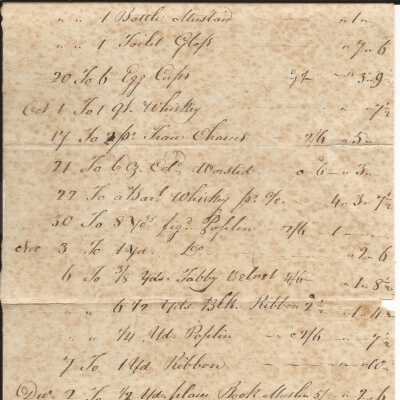 " " 1 Bottle Mustard " 1 "
" " 1 Toilet Glass " 7 " 6
20 To 6 Egg Cups 7½ " 3 " 9
Oct 1 To 1 qt. Whiskey " " 7½
17 To 2 pr. 2/6 " 5 "
21 To 6 oz Cold. Worsted 6 " 3 "
22 To a Whiskey pr. 4 " 3 " 7½
30 To 8 Yds. figd. Poplin 2/6 1 " "
Nov 3 To 1 Yd. Do " 2 " 6
6 To 3/8 Yds. Tabby Velvet 4/6 " 1 " 8½
" " 6 1/2 Yds Blk. Ribbon 2½ " 1 " 4½
" 1/4 Yd. Poplin 2/6 " 7½
7 To 1 Yd Ribbon " 10
Dec 2 To 1/2 Yd. plain Book Muslin 5/ " 2 " 6